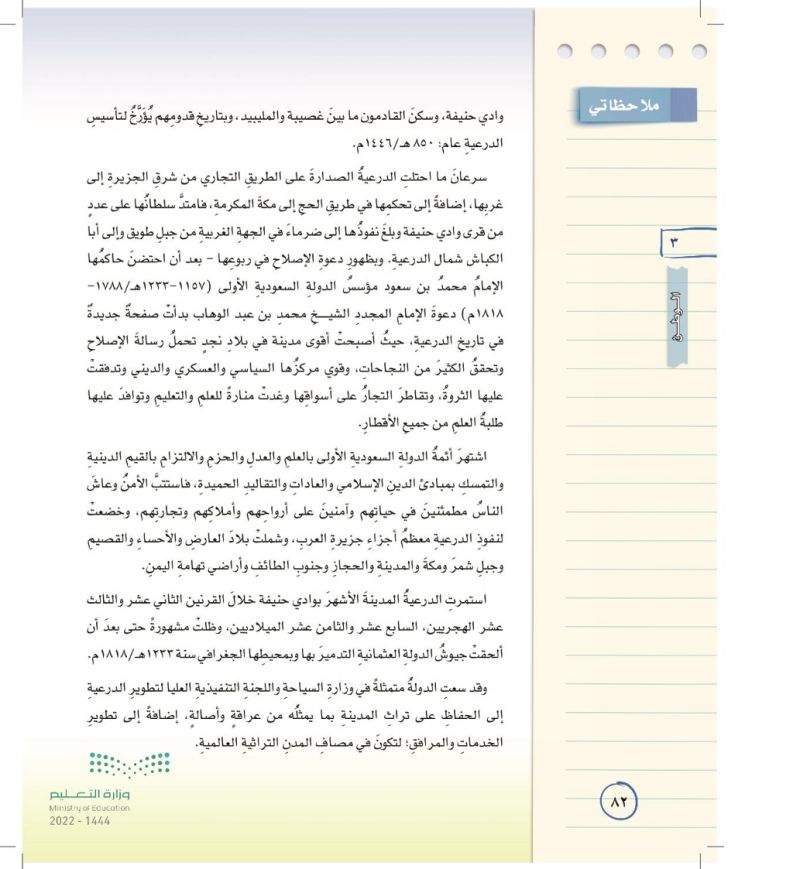 ملاحظاتي
٣
الـوطـــن
وادي حنيفة، وسكنَ القادمون ما بينَ غصيبة والمليبيد، وبتاريخِ قدومِهم يُؤَرَّخُ لتأسيسِ
الدرعيةِ عام: ٨٥٠ هـ/١٤٤٦م.
سرعانَ ما احتلتِ الدرعيةُ الصدارةَ على الطريقِ التجاري من شرقِ الجزيرةِ إلى
غربِها، إضافةً إلى تحكمِها في طريقِ الحج إلى مكةَ المكرمةِ، فامتدَّ سلطانُها على عددٍ
من قرى وادي حنيفة وبلغَ نفوذُها إلى ضرماءَ في الجهةِ الغربيةِ من جبلِ طويق وإلى أبا
الكباش شمال الدرعيةِ. وبظهورِ دعوةِ الإصلاحِ في ربوعِها – بعد أن احتضنَ حاكمُها
الإمامُ محمدُ بن سعود مؤسسُ الدولةِ السعوديةِ الأولى (١١٥٧-١٢٣٣هـ/١٧٨٨–
١٨١٨م) دعوةَ الإمامِ المجددِ الشيـــخِ محمدِ بن عبد الوهاب بدأتْ صفحةٌ جديدةٌ
في تاريخِ الدرعيةِ، حيثُ أصبحتْ أقوى مدينة في بلادِ نجدٍ تحملُ رسالةَ الإصلاحِ
وتحققُ الكثيرَ من النجاحاتِ، وقوي مركزُها السياسي والعسكري والديني وتدفقتْ
عليها الثروةُ، وتقاطرَ التجارُ على أسواقِها وغدتْ منارةً للعلمِ والتعليمِ وتوافدَ عليها
طلبةُ العلمِ من جميعِ الأقطارِ.
اشتهرَ أئمةُ الدولةِ السعوديةِ الأولى بالعلمِ والعدلِ والحزمِ والالتزام بالقيمِ الدينيةِ
والتمسكِ بمبادئِ الدينِ الإسلامي والعاداتِ والتقاليدِ الحميدةِ، فاستتبَّ الأمنُ وعاشَ
الناسُ مطمئنينَ في حياتِهم وآمنينَ على أرواحِهم وأملاكِهم وتجارتِهم، وخضعتْ
لنفوذِ الدرعيةِ معظمُ أجزاءِ جزيرةِ العربِ، وشملتْ بلادَ العارضِ والأحساءِ والقصيمِ
وجبلِ شمرَ ومكةَ والمدينةِ والحجازِ وجنوبِ الطائفِ وأراضي تهامةِ اليمنِ.
استمرتِ الدرعيةُ المدينةَ الأشهرَ بوادي حنيفة خلالَ القرنين الثاني عشر والثالث
عشر الهجريين، السابع عشر والثامن عشر الميلاديين، وظلتْ مشهورةً حتى بعدَ أن
ألحقتْ جيوشُ الدولةِ العثمانيةِ التدميرَ بها وبمحيطِها الجغرافي سنة ١٢٣٣هـ/١٨١٨م.
وقد سعتِ الدولةُ متمثلةً في وزارةِ السياحةِ واللجنةِ التنفيذيةِ العليا لتطويرِ الدرعيةِ
إلى الحفاظِ على تراثِ المدينةِ بما يمثلُه من عراقةٍ وأصالةٍ، إضافةً إلى تطويرِ
الخدماتِ والمرافقِ؛ لتكونَ في مصافِ المدنِ التراثيةِ العالميةِ.
وزارة التعـــليم
Ministry of Education
2022 - 1444
٨٢